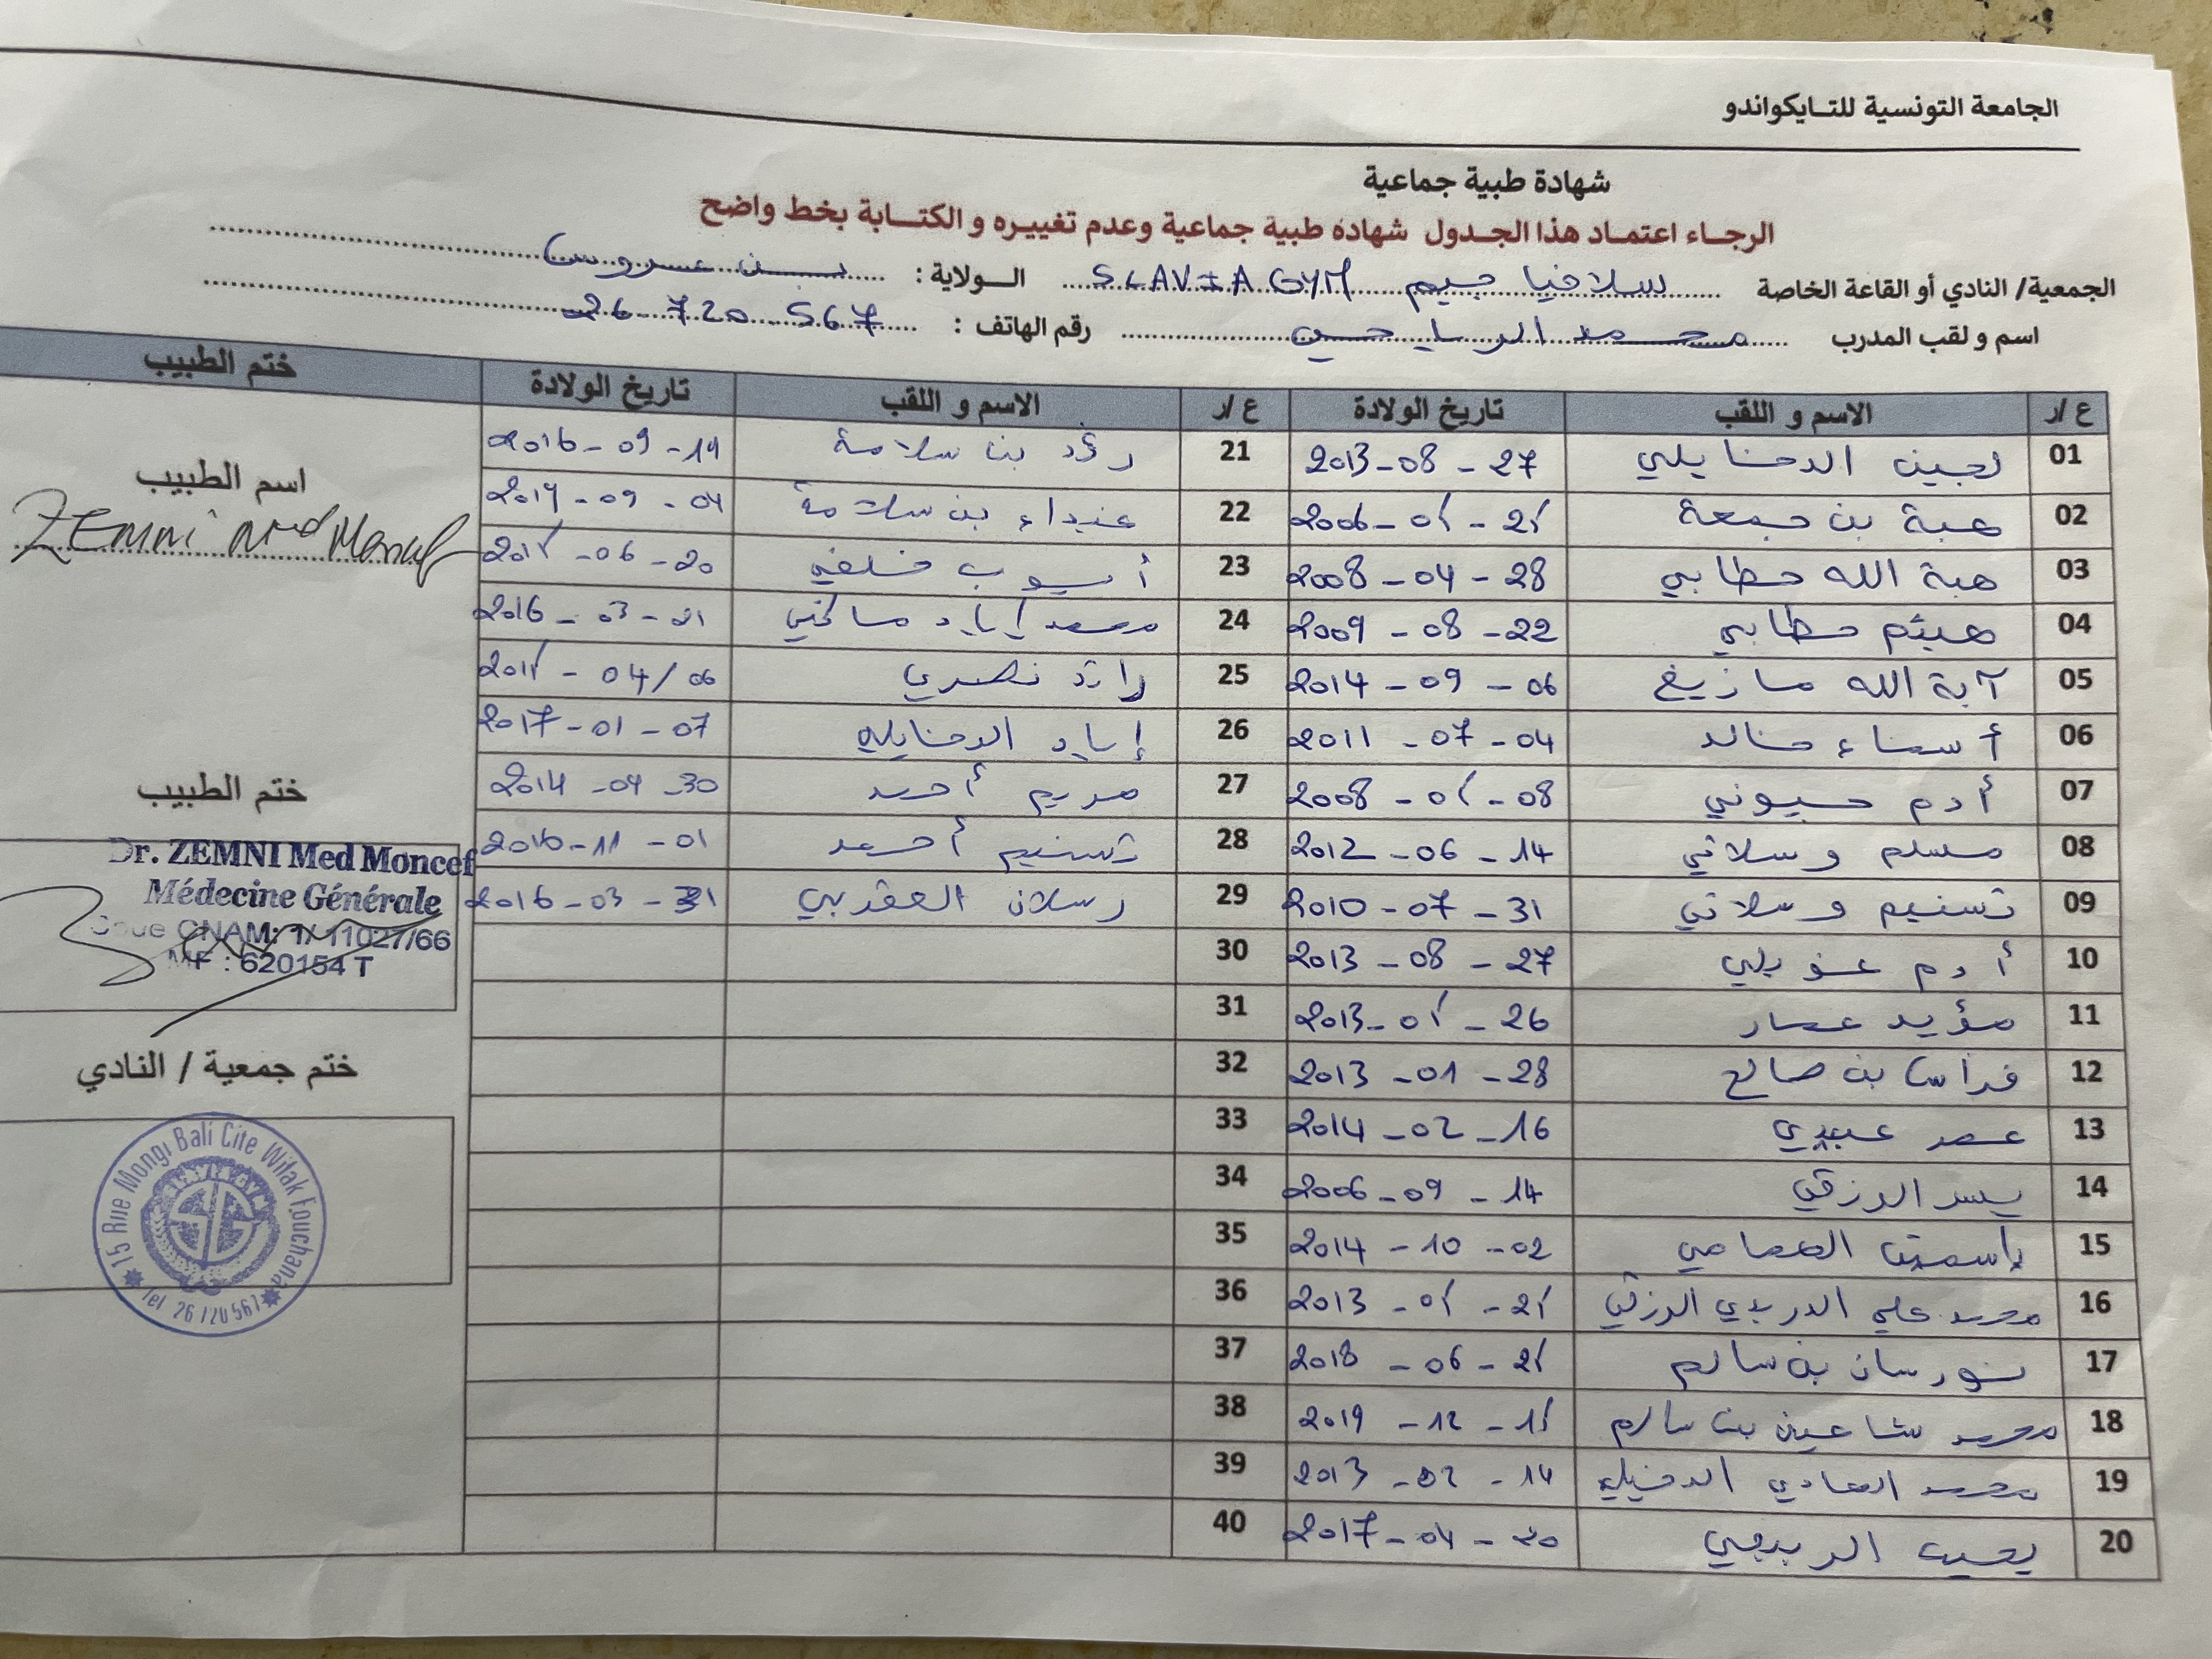 الجامعة التونسية للتايكواندو
شهادة طبية جماعية
الرجاء اعتماد هذا الجدول شهادة طبية جماعية وعدم تغييره و الكتابة بخط واضح
الجمعية/ النادي أو القاعة الخاصة سلافيا جيم SLAVIA GYM الولاية : بن عروس
اسم و لقب المدرب محمد الرياحي رقم الهاتف : 26 720 567
ع/ر الاسم و اللقب تاريخ الولادة ع/ر الاسم و اللقب تاريخ الولادة ختم الطبيب
01 لجين الدخايلي 27 - 08 - 2013 21 رؤد بن سلامة 14 - 09 - 2016
02 هبة بن جمعة 2006 22 غيداء بن سلامة 04 - 09
03 هبة الله حطابي 28 - 04 - 2008 23 أيوب خلفي 20 - 06
04 هيثم حطابي 22 - 08 - 2009 24 محمد إياد 01 - 03 - 2016
05 آية الله مازيغ 06 - 09 - 2014 25 رائد نصري 06 / 04
06 أسماء خالد 04 - 07 - 2011 26 إياد الدخايلي 07 - 01 - 2017
07 أدم حيوني 08 2008 27 مريم أحمد 30 2014
08 مسلم وسلاتي 14 - 06 - 2012 28 تسنيم أحمد 01 - 11 - 2016
09 تسنيم وسلاتي 31 - 07 - 2010 29 رسلان العقربي 31 - 03 - 2016
10 أدم عويلي 27 - 08 - 2013 30
11 مؤيد عمار 26 2013 31
12 فراس بن صالح 28 - 01 - 2013 32
13 عمر عبيدي 16 - 02 - 2014 33
14 يسر الرزقي 14 - 09 - 2006 34
15 ياسمين 02 - 10 - 2014 35
16 محمد علي الدريدي الرزقي 2013 36
17 نورسان بن سالم 06 - 2018 37
18 محمد شاهين بن سالم 12 - 2019 38
19 محمد الهادي الدخيلي 14 - 02 - 2013 39
20 يحيى 04 - 2017 40
اسم الطبيب
ZEMNI Med Moncef
ختم الطبيب
Dr. ZEMNI Med Moncef
Médecine Générale
CNAM: 1/ 11027/66
MF : 620154 T
ختم جمعية / النادي
15 Rue Mongi Bali Cite Wifak Fouchana
Tel 26 720 567